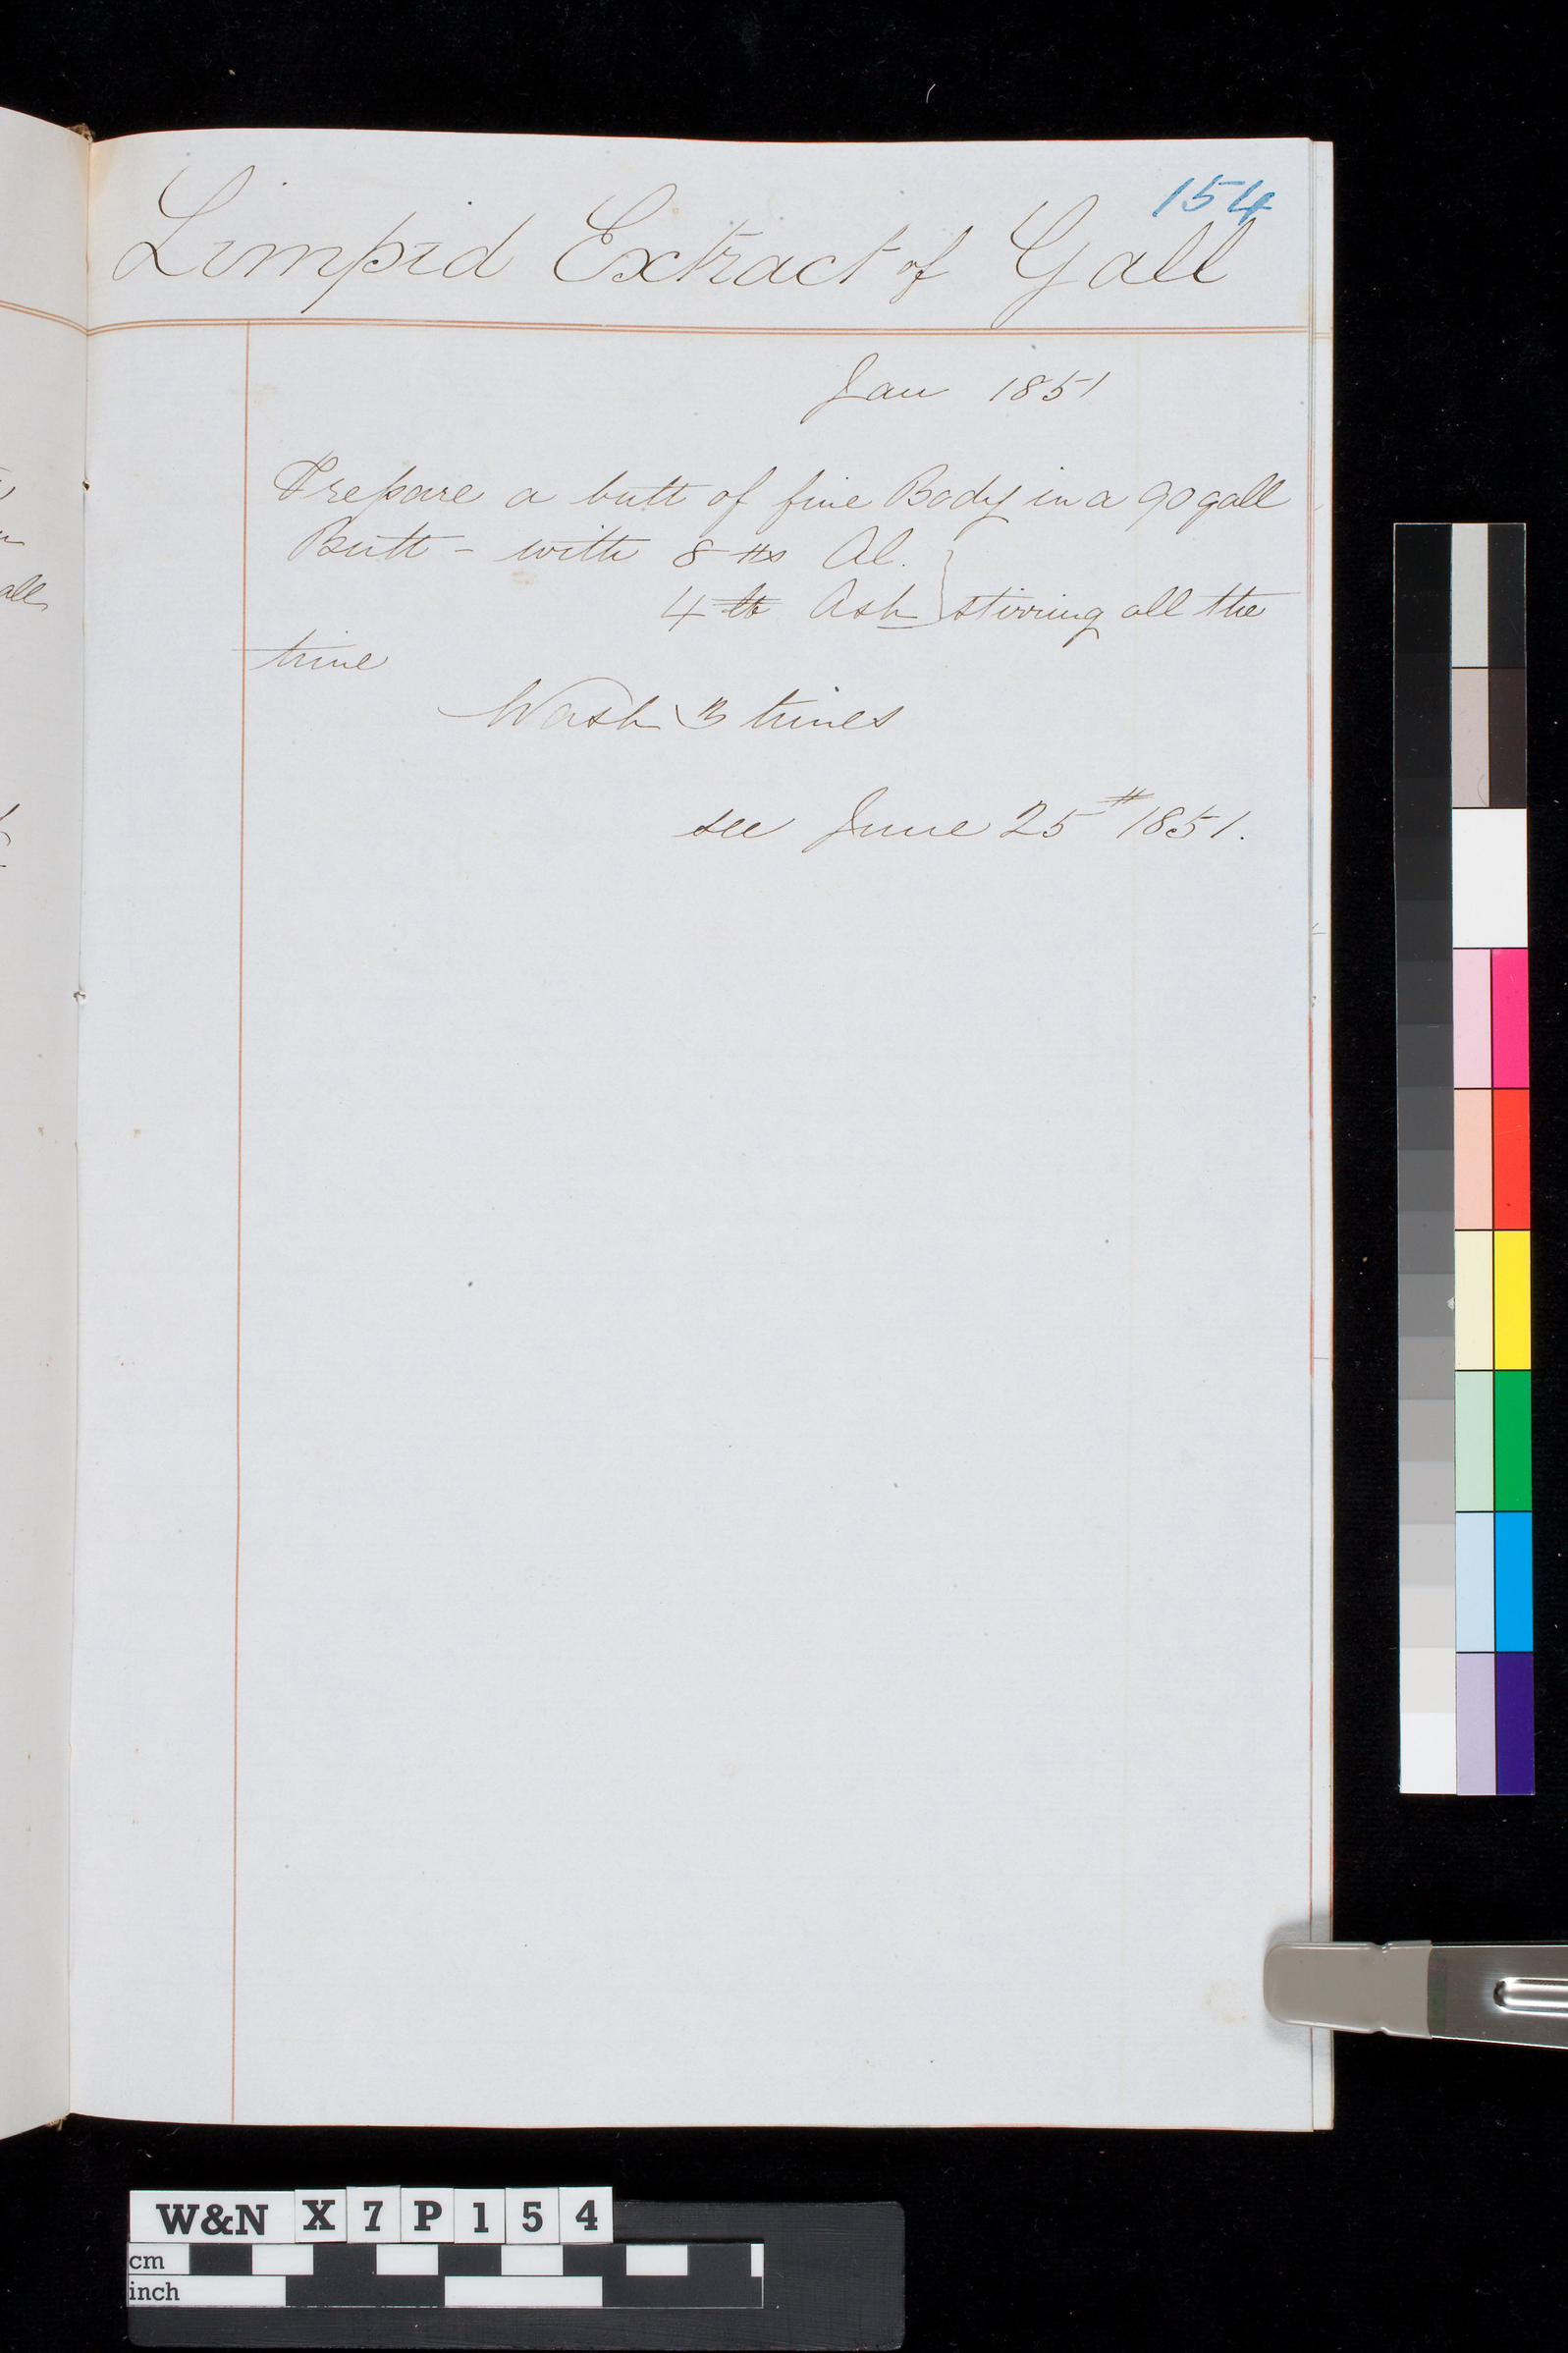 154
Limpid Extract of Gall
Jan 1851
Prepare a butt of fine Body in a 90 gall
Butt - with 8 lbs Al.
4 lb Ash } stirring all the
time
Wash 3 times
see June 25th 1851.
all
W&N X 7 P 1 5 4
cm
inch